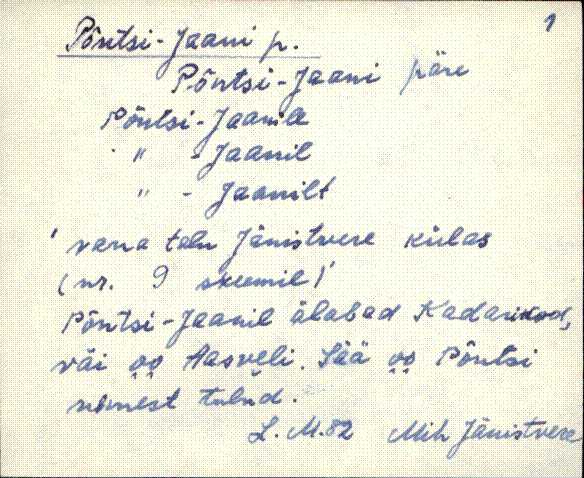 1
Põntsi-Jaani p.
Põntsi-Jaani päre
Põntsi-Jaanile
" -Jaanil
" - Jaanilt
' vana talu Jänistvere külas
(nr. 9 skeemil)'
Põntsi-Jaanil ălabad Kadarikod,
väi o̬o̬ Aasveli. Sää o̬o̬ Põntsi
nimest tulud.
L. M.82 Mih Jänistvere